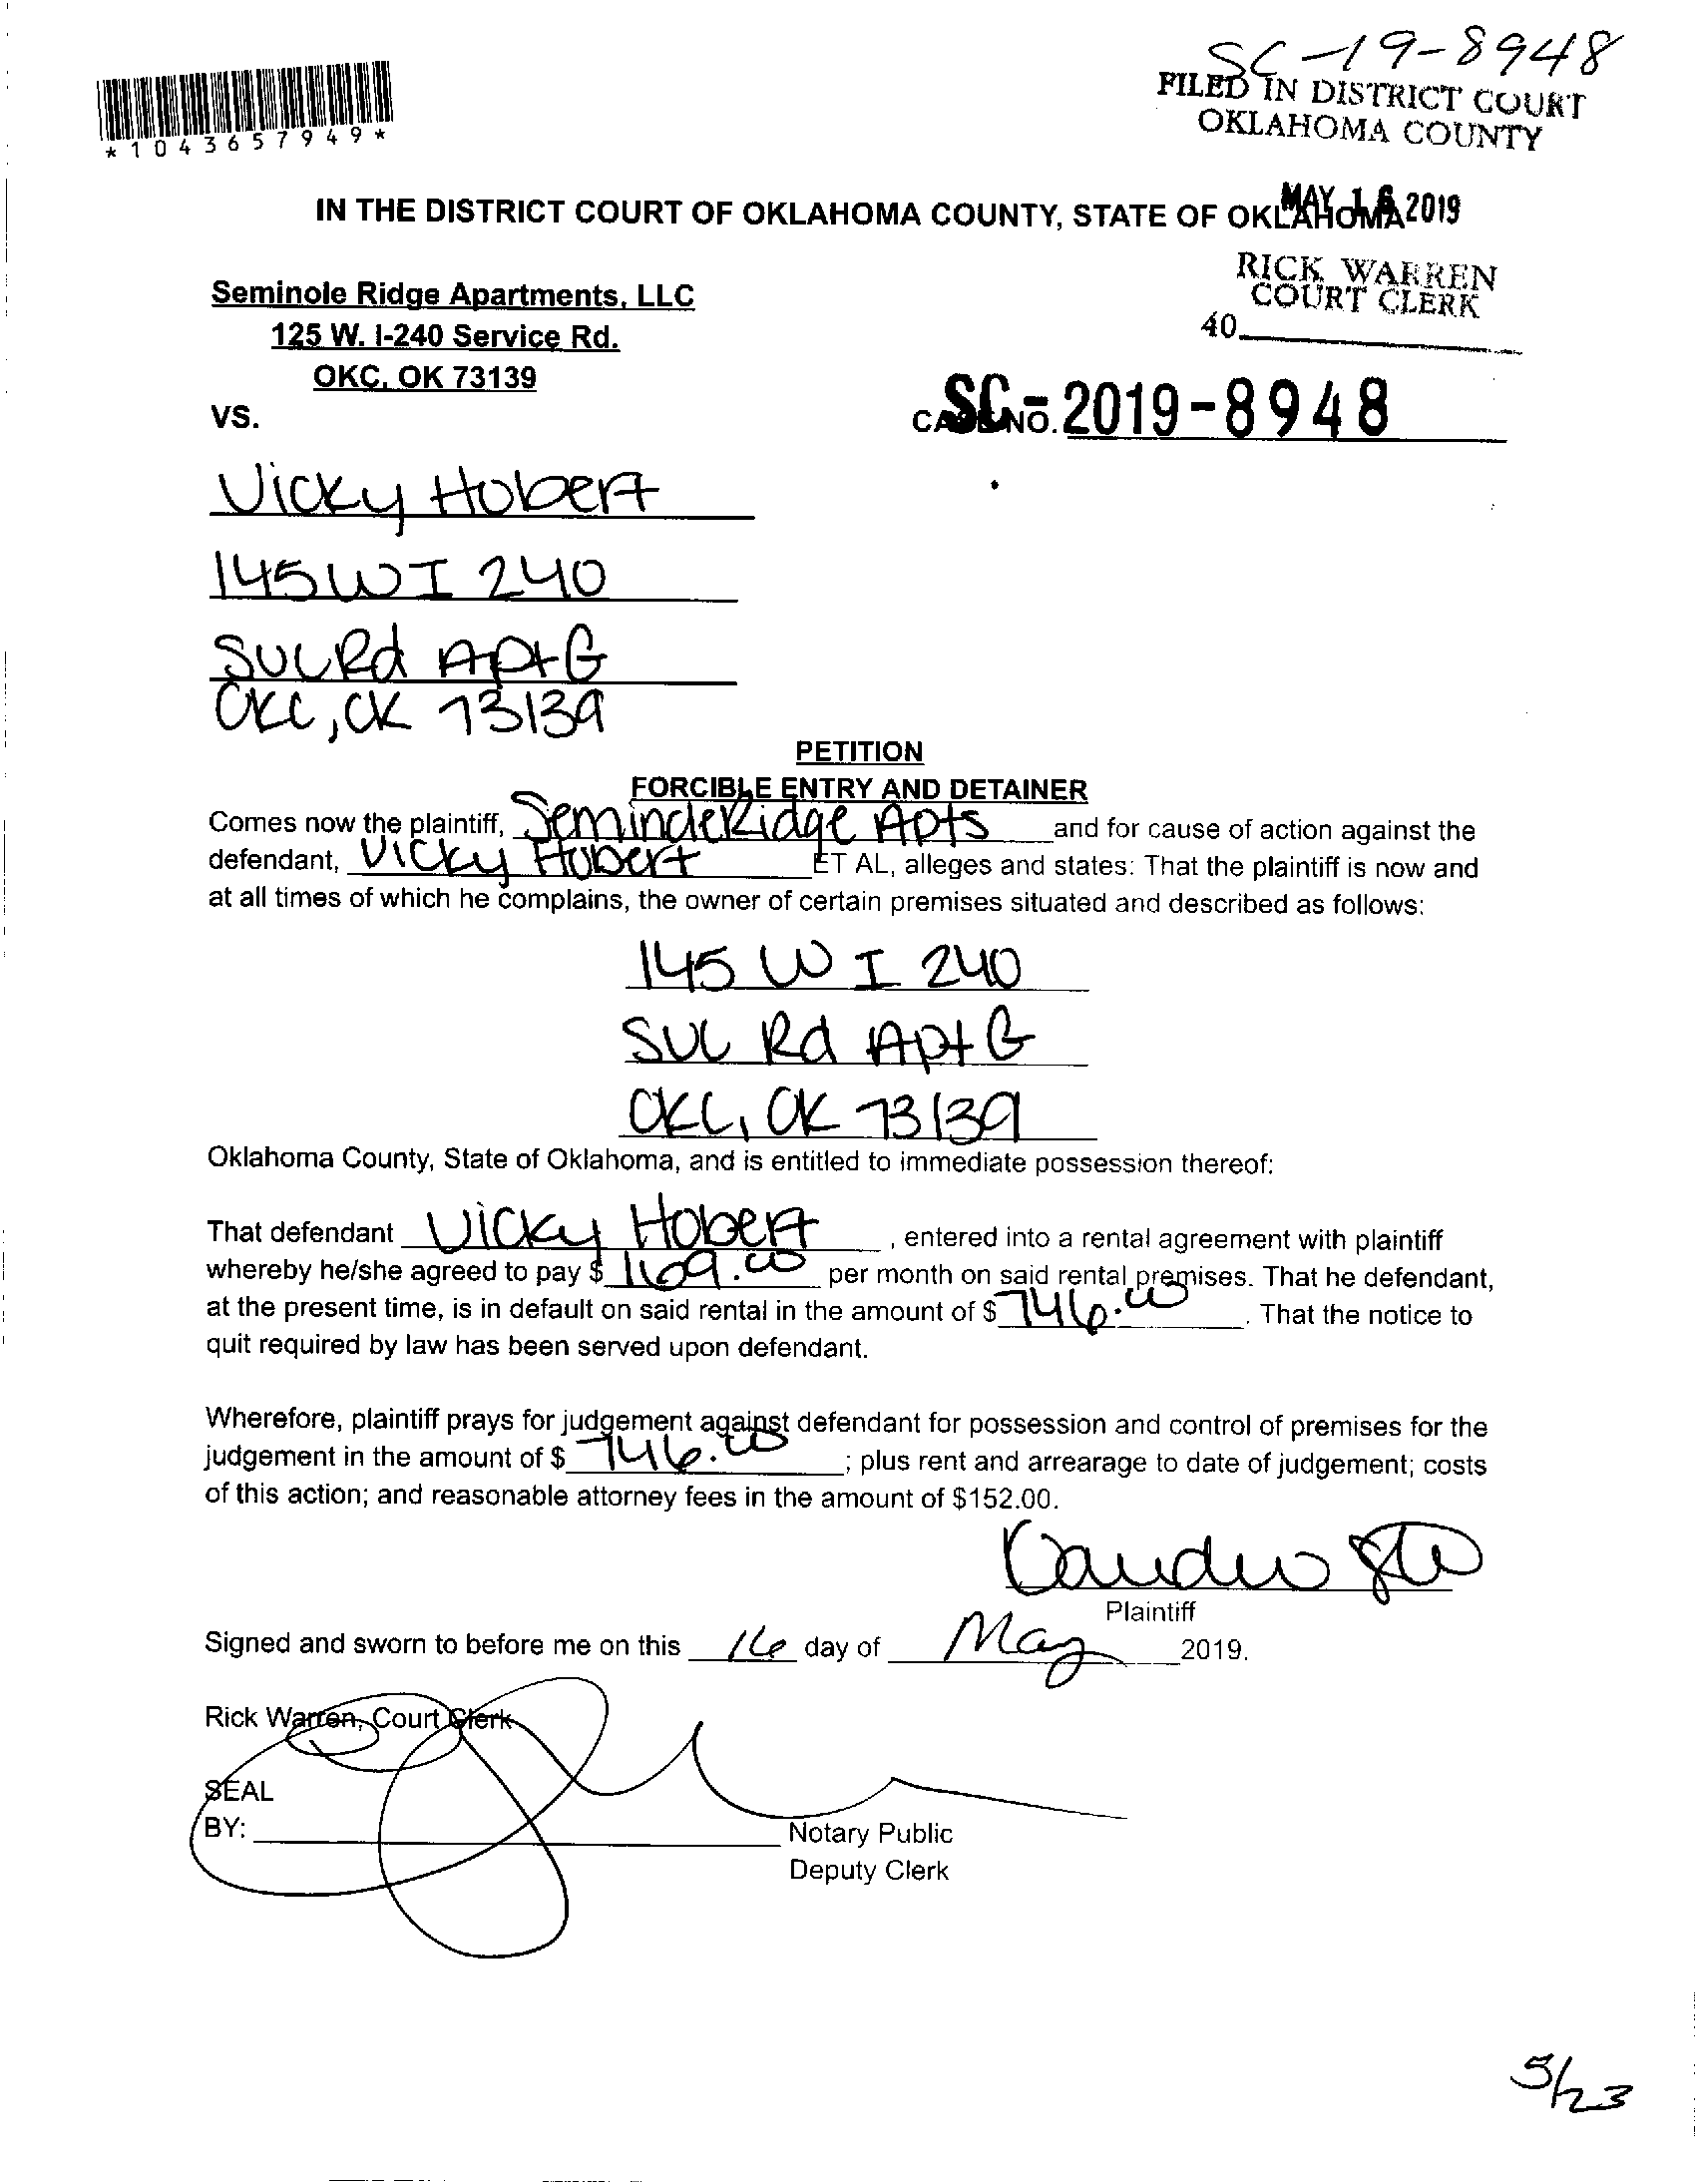 SC-19-8948
FILED IN DISTRICT COURT
OKLAHOMA COUNTY
*1043657949*
MAY 16 2019
IN THE DISTRICT COURT OF OKLAHOMA COUNTY, STATE OF OKLAHOMA
RICK WARREN
COURT CLERK
40
Seminole Ridge Apartments, LLC
125 W. I-240 Service Rd.
OKC, OK 73139
VS.
CASE NO. SC-2019-8948
Vicky Hobert
145 W I 240
SVC Rd Apt G
OKC, OK 73139
PETITION
FORCIBLE ENTRY AND DETAINER
Comes now the plaintiff, Seminole Ridge Apts and for cause of action against the
defendant, Vicky Hobert ET AL, alleges and states: That the plaintiff is now and
at all times of which he complains, the owner of certain premises situated and described as follows:
145 W I 240
SVC Rd Apt G
OKC, OK 73139
Oklahoma County, State of Oklahoma, and is entitled to immediate possession thereof:
That defendant Vicky Hobert, entered into a rental agreement with plaintiff
whereby he/she agreed to pay $ 1169.00 per month on said rental premises. That he defendant,
at the present time, is in default on said rental in the amount of $ 746.00. That the notice to
quit required by law has been served upon defendant.
Wherefore, plaintiff prays for judgement against defendant for possession and control of premises for the
judgement in the amount of $ 746.00; plus rent and arrearage to date of judgement; costs
of this action; and reasonable attorney fees in the amount of $152.00.
Plaintiff
Signed and sworn to before me on this 16 day of May 2019.
Rick Warren, Court Clerk
SEAL
BY: Notary Public
Deputy Clerk
5/23